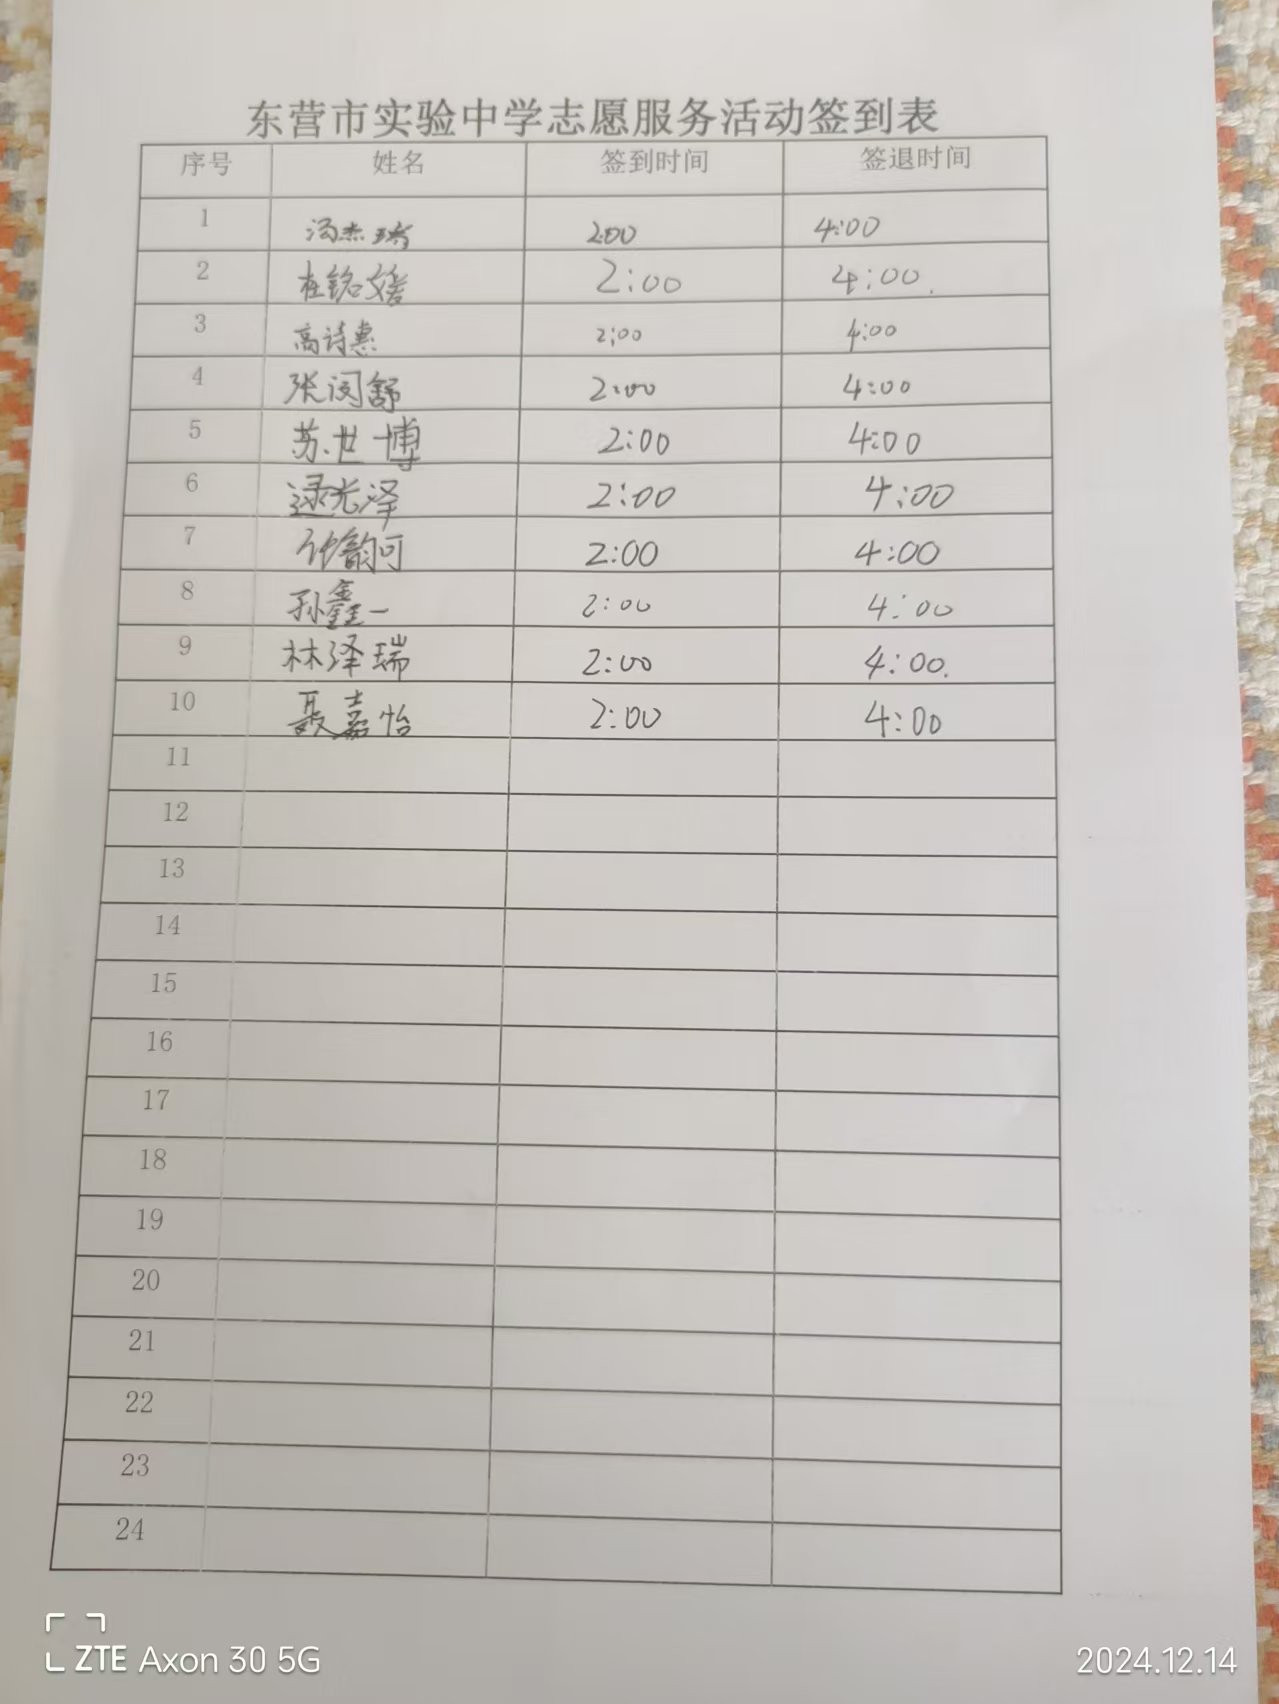 东营市实验中学志愿服务活动签到表
序号 姓名 签到时间 签退时间
1 冯杰琦 2:00 4:00
2 杜铭媛 2:00 4:00.
3 高诗惠 2:00 4:00
4 张闵舒 2:00 4:00
5 苏世博 2:00 4:00
6 逯光泽 2:00 4:00
7 韵可 2:00 4:00
8 孙鑫一 2:00 4:00
9 林泽瑞 2:00 4:00.
10 聂嘉怡 2:00 4:00
11
12
13
14
15
16
17
18
19
20
21
22
23
24
ZTE Axon 30 5G 2024.12.14